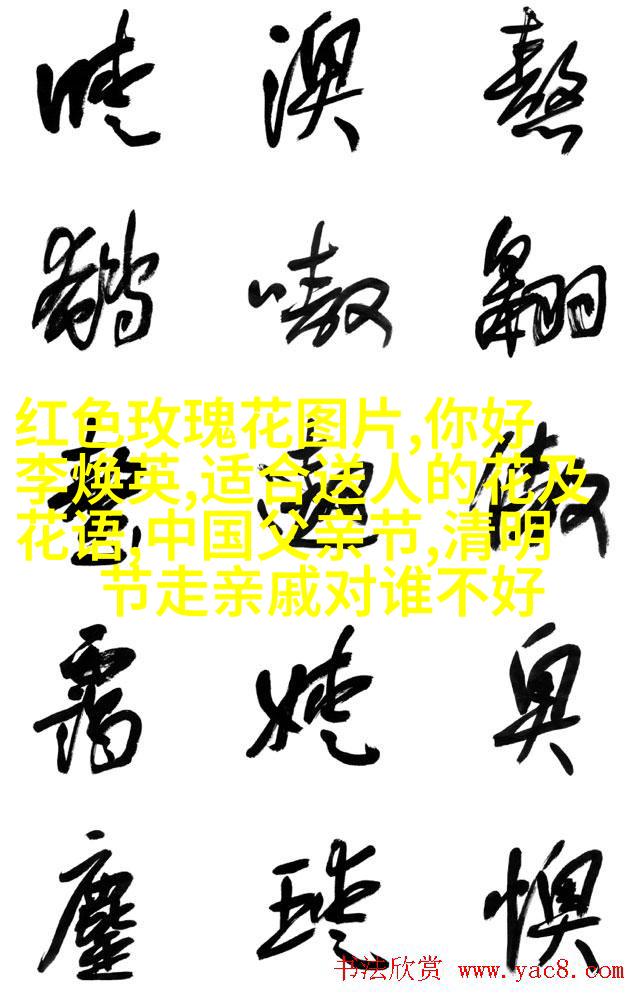 澳 熬
嗷 翱
红色玫瑰花图片,你好
李焕英,适合送人的花及
花语,中国父亲节,清明
节走亲戚对谁不好
遨 傲
霭 嫒 奥
鏖 瑷 懊
书法欣赏 www.yac8.com